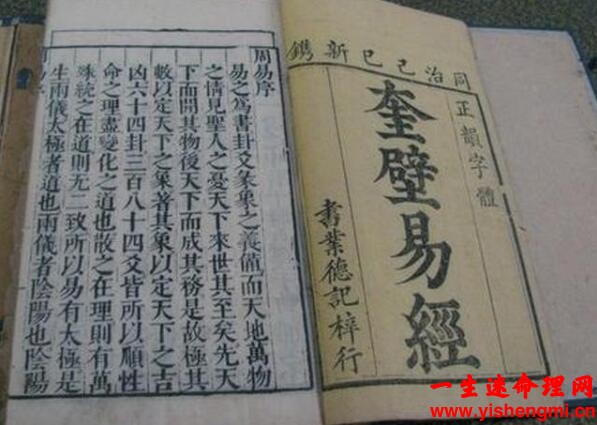 同治己巳新鐫
正韻字體
奎壁易經
書業德記梓行
周易序
易之爲書卦爻彖象之義備而天地萬物
之情見聖人之憂天下來世其至矣先天
下而開其物後天下而成其務是故極其
數以定天下之象著其象以定天下之吉
凶六十四卦三百八十四爻皆所以順性
命之理盡變化之道也散之在理則有萬
殊統之在道則无二致所以易有太極是
生兩儀太極者道也兩儀者陰陽也陰陽
一生迷命理网
www.yishengmi.cn